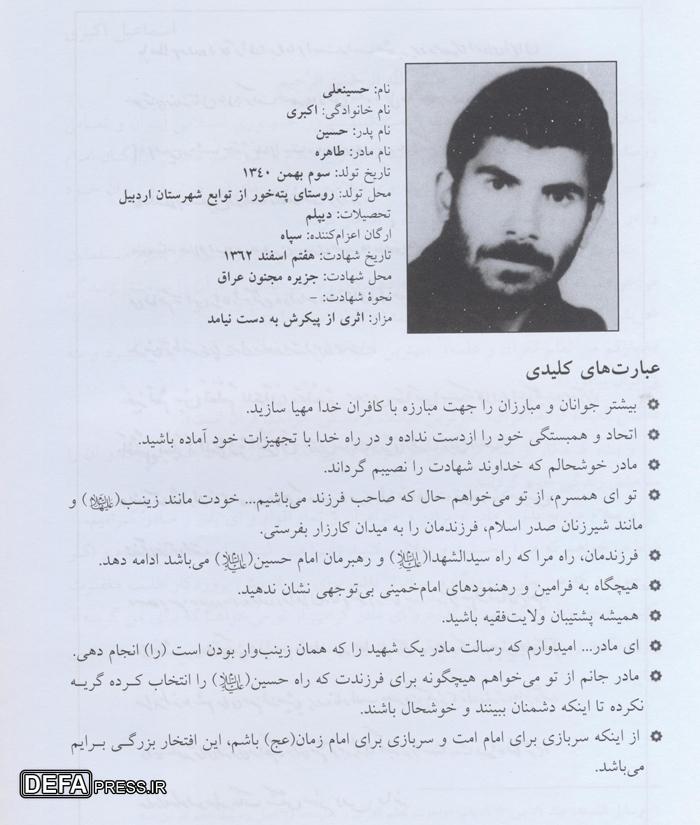 نام: حسینعلی
نام خانوادگی: اکبری
نام پدر: حسین
نام مادر: طاهره
تاریخ تولد: سوم بهمن ۱۳۴۰
محل تولد: روستای پته‌خور از توابع شهرستان اردبیل
تحصیلات: دیپلم
ارگان اعزام‌کننده: سپاه
تاریخ شهادت: هفتم اسفند ۱۳۶۲
محل شهادت: جزیره مجنون عراق
نحوهٔ شهادت: –
مزار: اثری از پیکرش به دست نیامد
عبارت‌های کلیدی
بیشتر جوانان و مبارزان را جهت مبارزه با کافران خدا مهیا سازید.
اتحاد و همبستگی خود را ازدست نداده و در راه خدا با تجهیزات خود آماده باشید.
مادر خوشحالم که خداوند شهادت را نصیبم گرداند.
تو ای همسرم، از تو می‌خواهم حال که صاحب فرزند می‌باشیم... خودت مانند زینب(علیهاالسلام) و
مانند شیرزنان صدر اسلام، فرزندمان را به میدان کارزار بفرستی.
فرزندمان، راه مرا که راه سیدالشهدا(علیه‌السلام) و رهبرمان امام حسین(علیه‌السلام) می‌باشد ادامه دهد.
هیچگاه به فرامین و رهنمودهای امام‌خمینی بی‌توجهی نشان ندهید.
همیشه پشتیبان ولایت‌فقیه باشید.
ای مادر... امیدوارم که رسالت مادر یک شهید را که همان زینب‌وار بودن است (را) انجام دهی.
مادر جانم از تو می‌خواهم هیچگونه برای فرزندت که راه حسین(علیه‌السلام) را انتخاب کرده گریه
نکرده تا اینکه دشمنان ببینند و خوشحال باشند.
از اینکه سربازی برای امام امت و سربازی برای امام زمان(عج) باشم، این افتخار بزرگی برایم
می‌باشد.
DEFAPRESS.IR